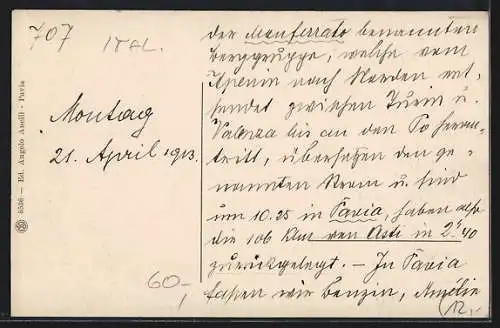 707
ITAL.
Montag
21. April 1913.
60,-
8536 — Ed. Angolo Anelli - Pavia
der Monferrato benannten
Berggruppe, welche vom
Apenin nach Norden ent-
sendet zwischen Turin u.
Valenza bis an den Po heran-
tritt, übersetzen den ge-
nannten Strom u. sind
um 10.25 in Pavia, haben also
die 106 Km von Asti in 2h 40
zurückgelegt. — In Pavia
faßen wir Benzin, Amélie
(12,-